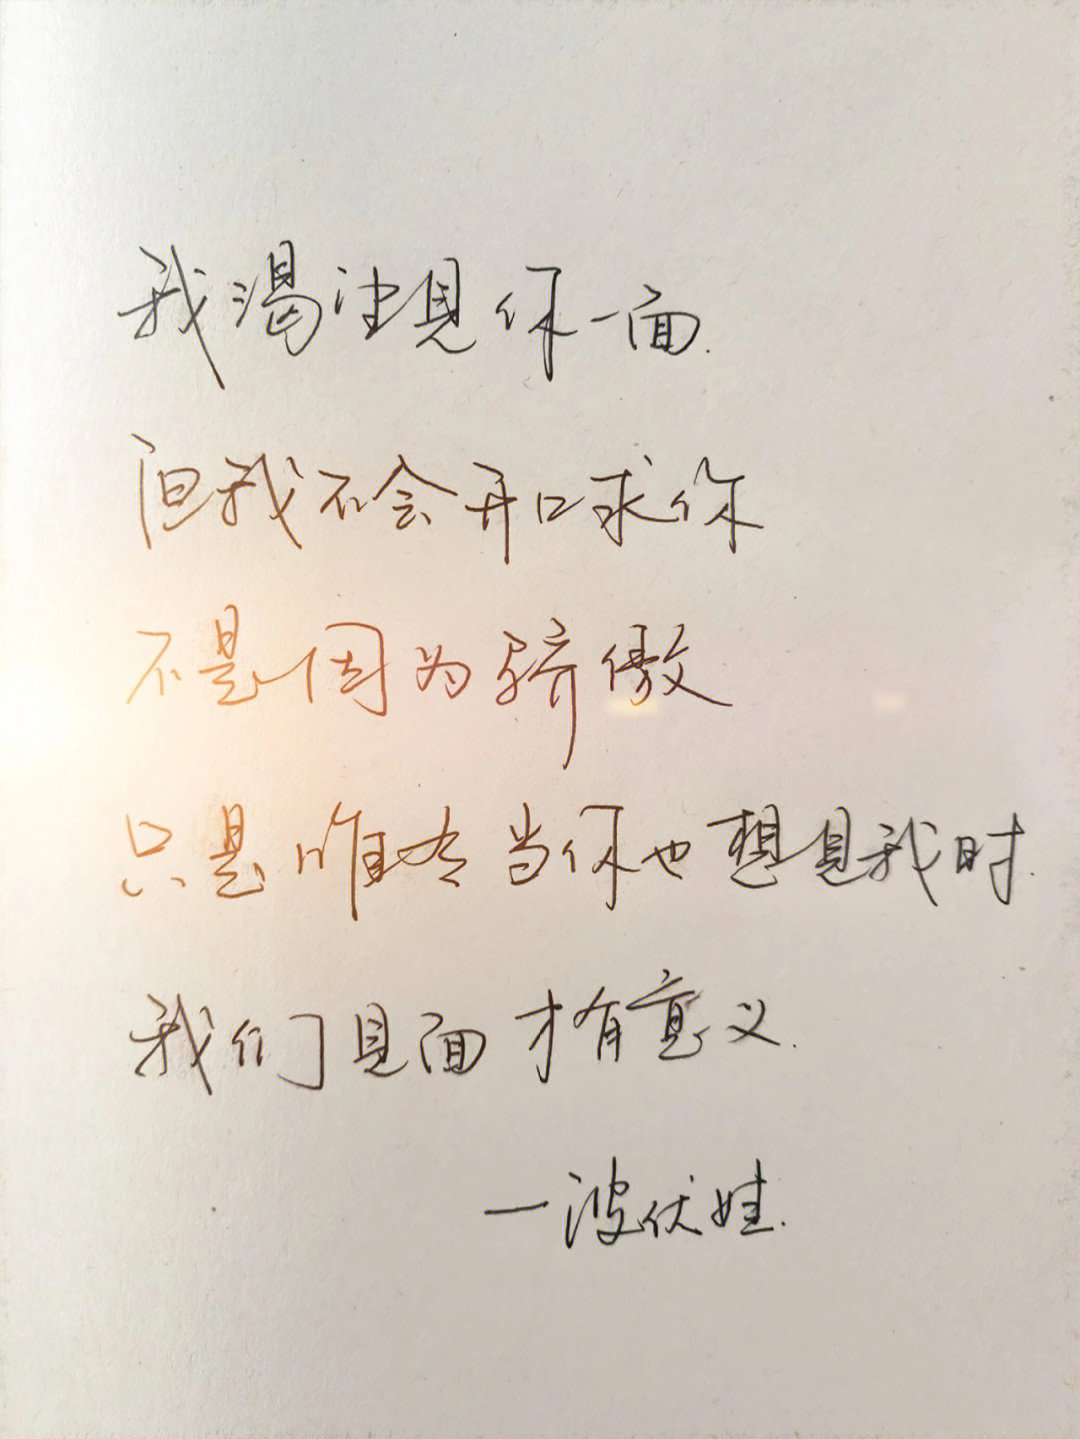 我渴望见你一面.
但我不会开口求你
不是因为骄傲
只是唯有当你也想见我时.
我们见面才有意义.
—波伏娃.